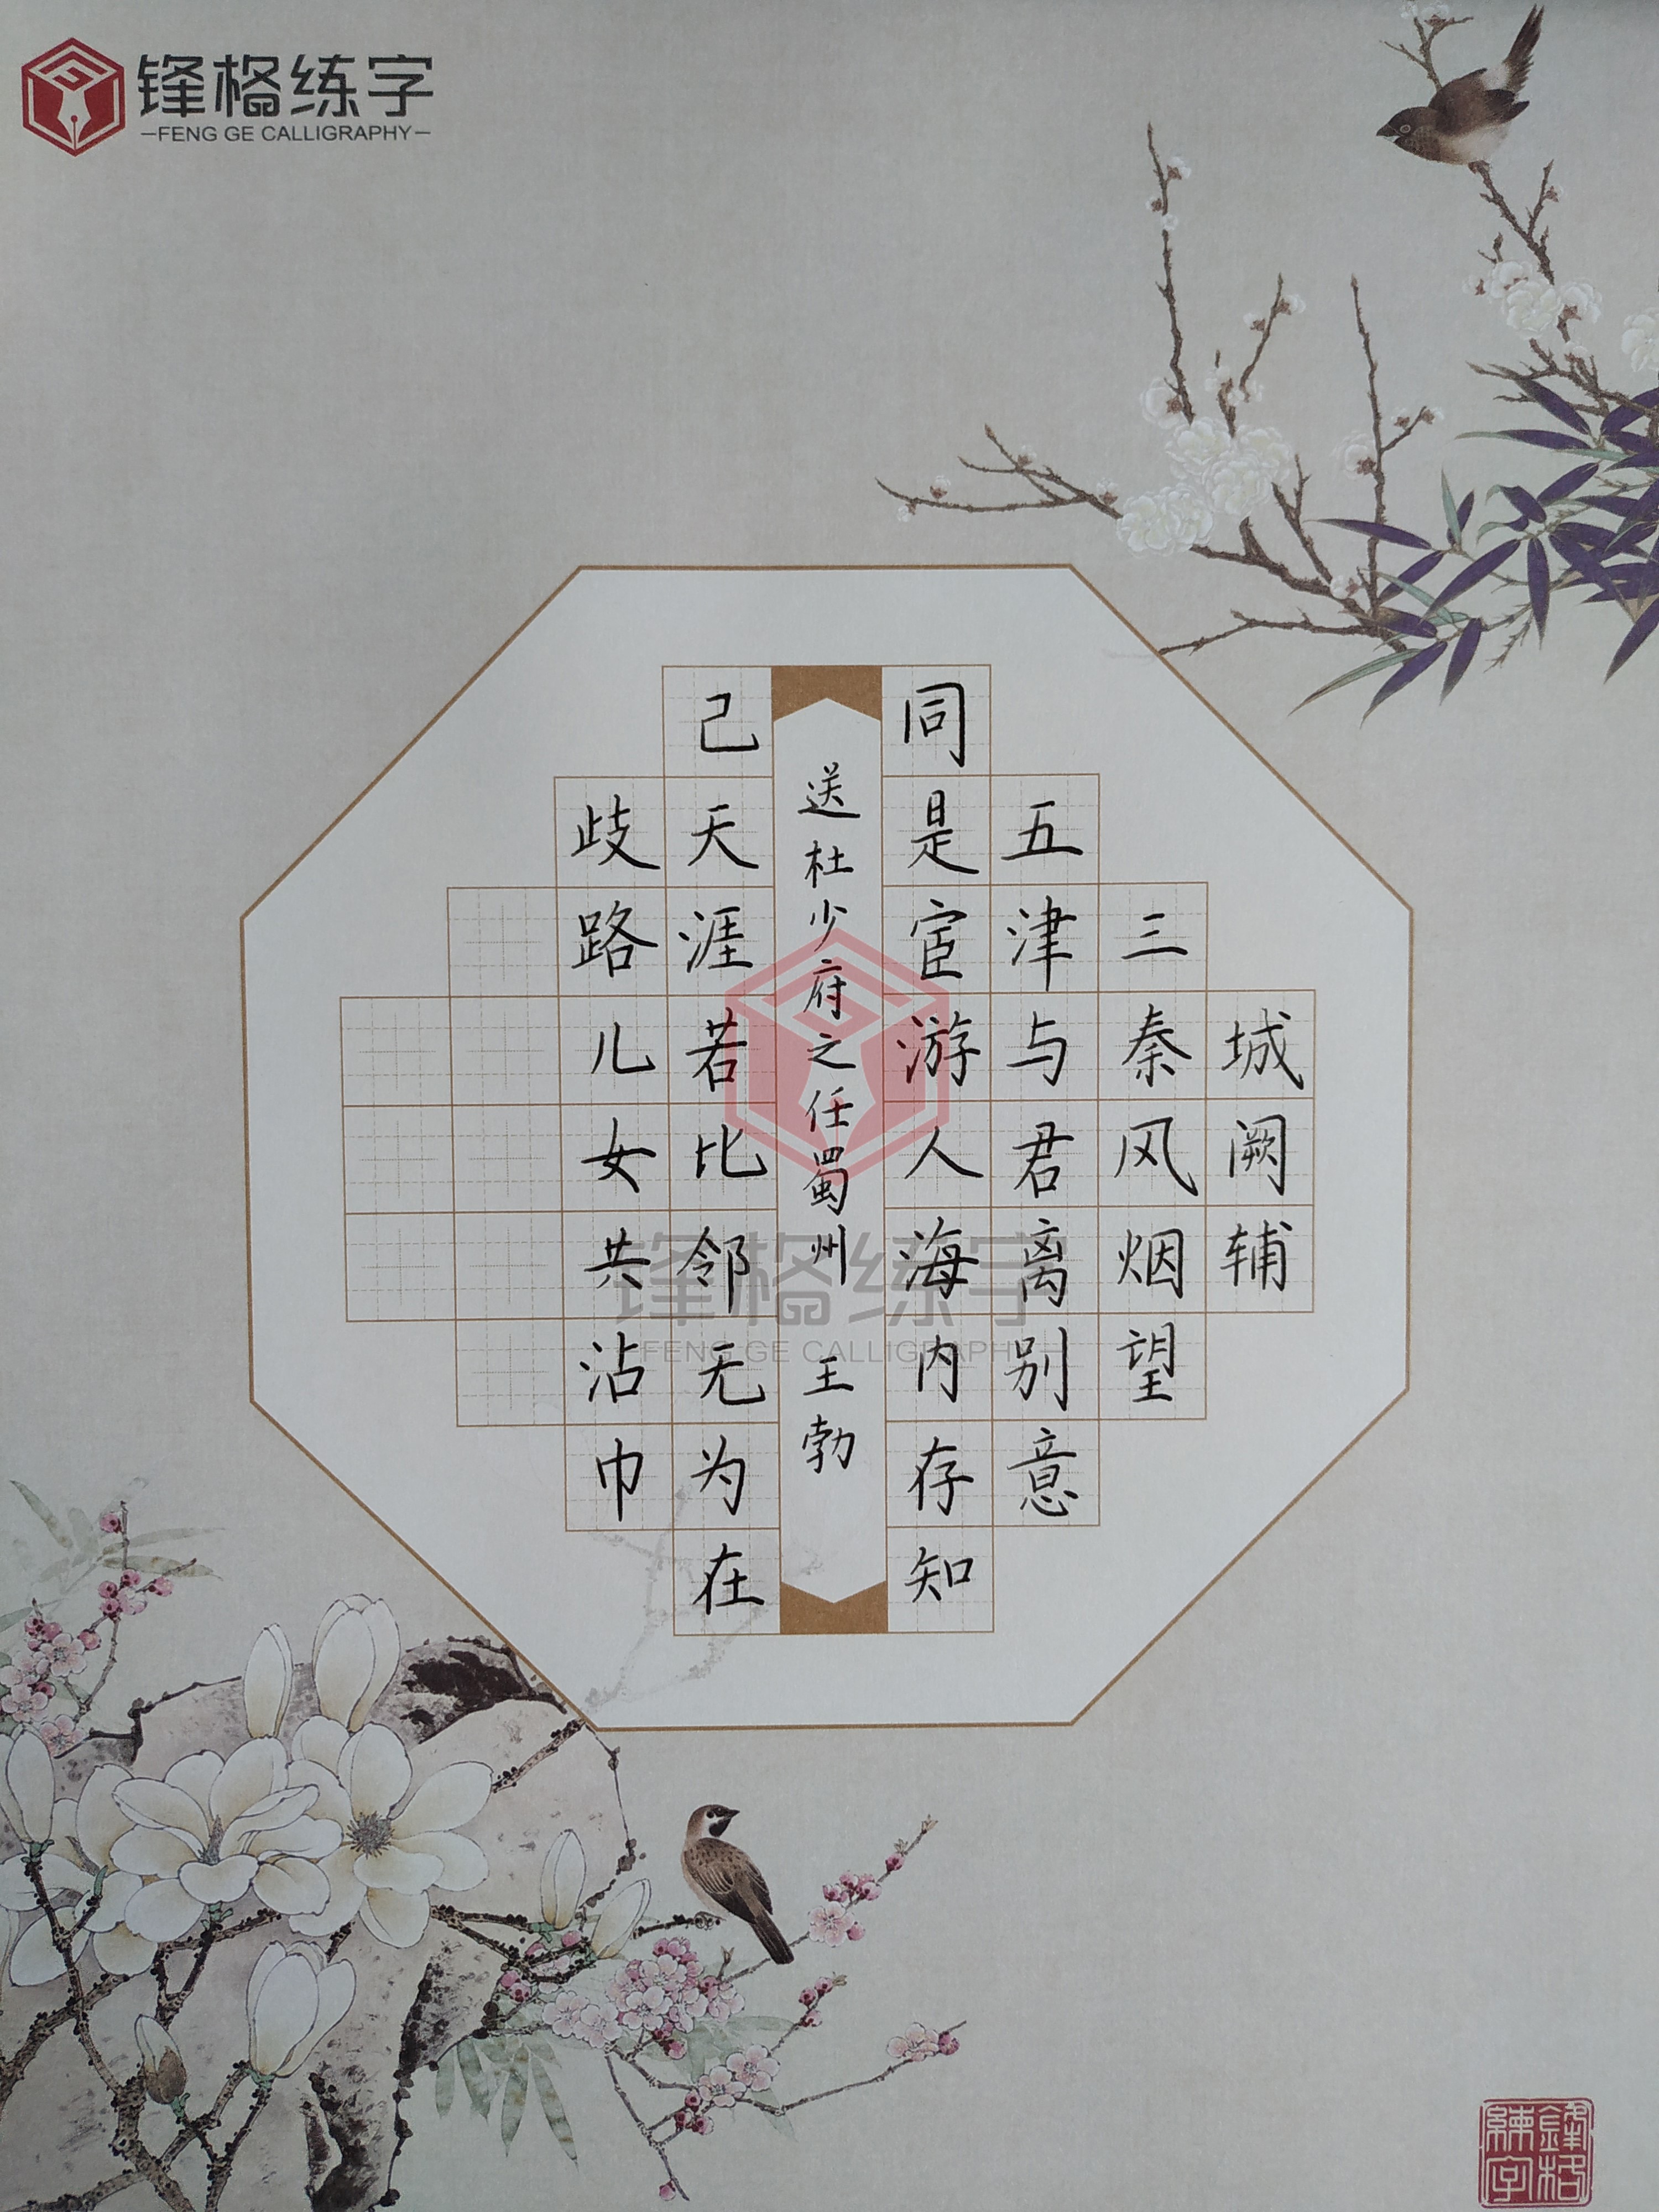 锋格练字
FENG GE CALLIGRAPHY
城阙辅
三秦风烟望
五津与君离别意
同是宦游人海内存知
送杜少府之任蜀州 王勃
己天涯若比邻无为在
歧路儿女共沾巾
锋格练字
FENG GE CALLIGRAPHY
鋒格練字